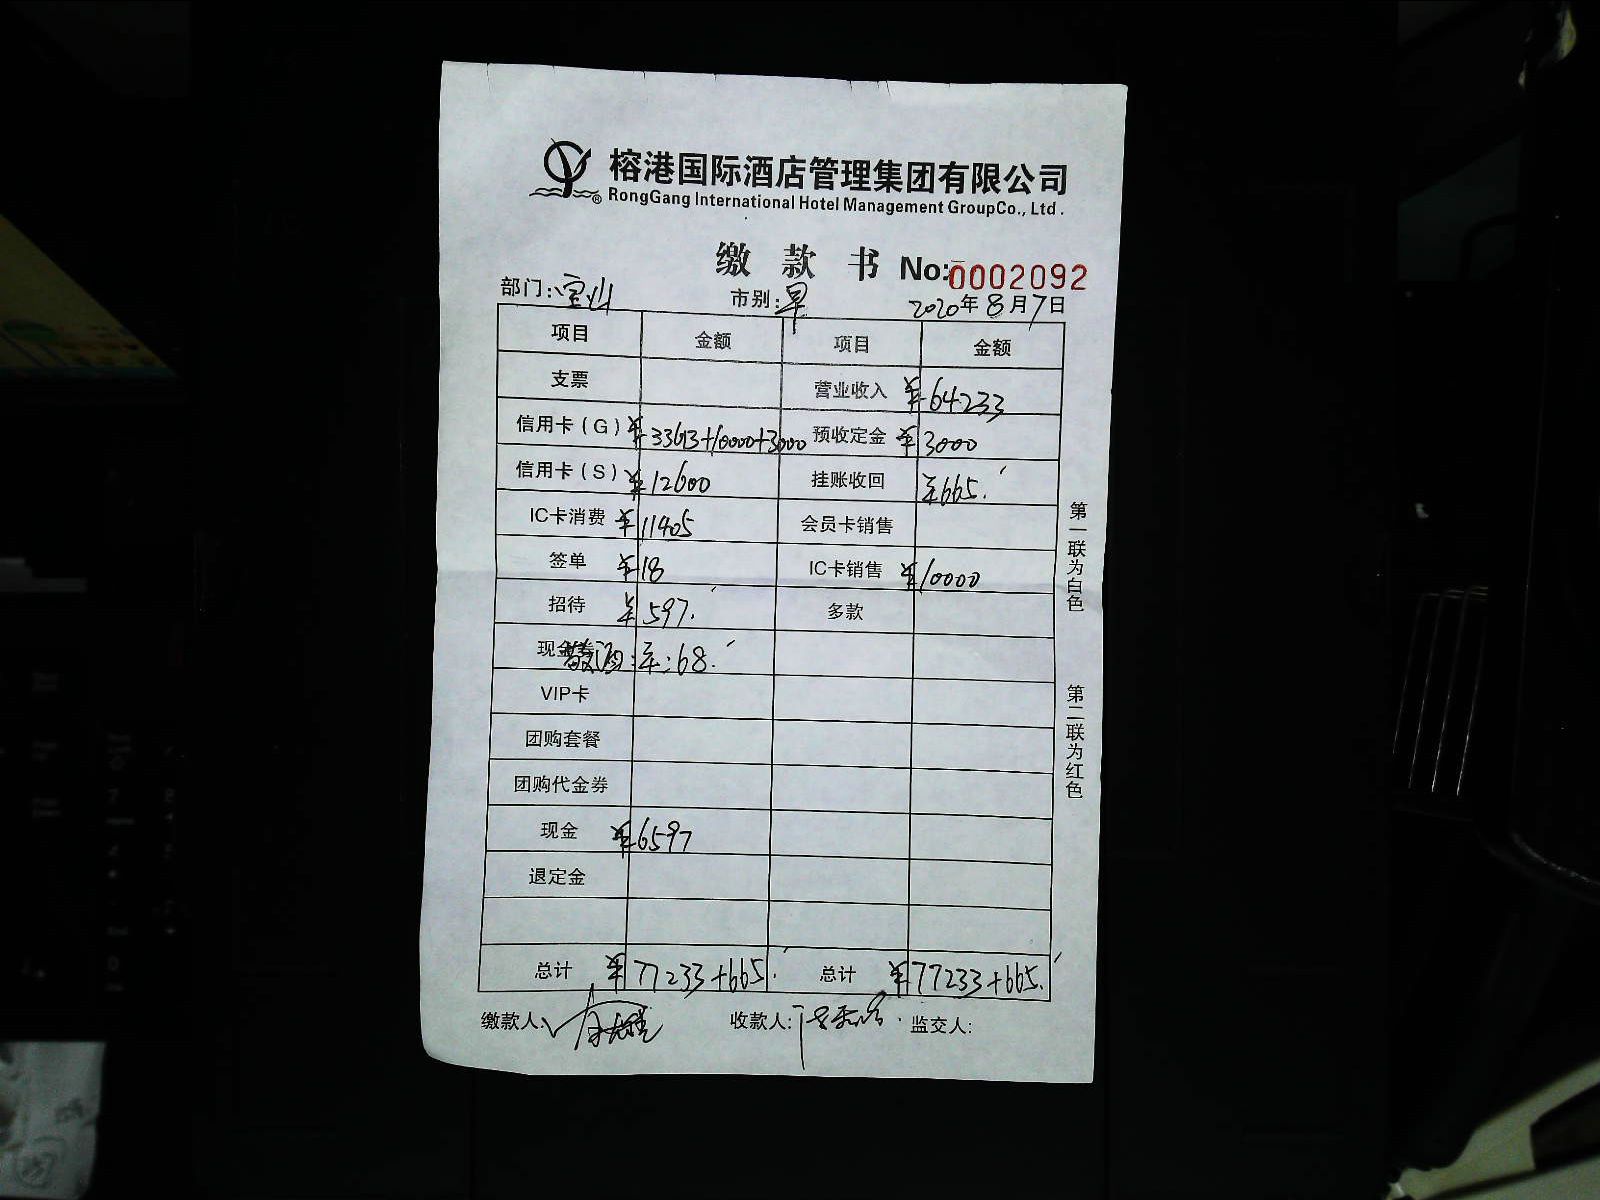 榕港国际酒店管理集团有限公司
RongGang International Hotel Management GroupCo., Ltd.
缴款书 No:0002092
部门: 市别:早 2020年8月7日
项目 金额 项目 金额
支票 营业收入 ¥64233
信用卡(G) ¥33613+10000+3000 预收定金 ¥3000
信用卡(S) ¥12600 挂账收回 ¥665.
IC卡消费 ¥11405 会员卡销售
签单 ¥18 IC卡销售 ¥10000
招待 ¥597. 多款
现金券 ¥:68.
VIP卡
团购套餐
团购代金券
现金 ¥6597
退定金
总计 ¥77233+665. 总计 ¥77233+665.
缴款人: 收款人: 监交人:
第一联为白色
第二联为红色